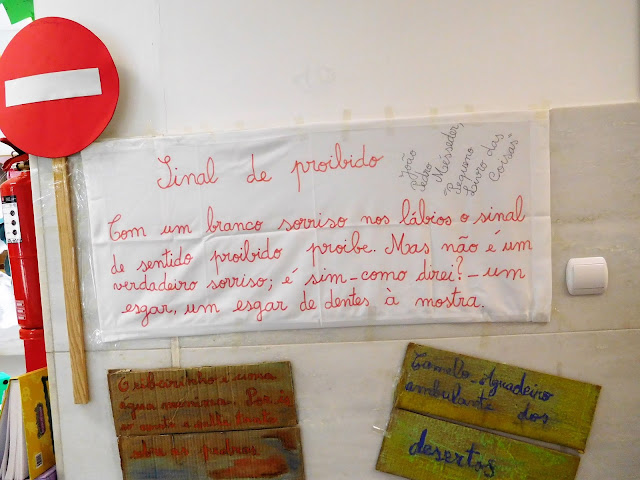 Sinal de proibido
João
Pedro
Mésseder,
"Pequeno
Livro das
Coisas"
Com um branco sorriso nos lábios o sinal
de sentido proibido proíbe. Mas não é um
verdadeiro sorriso; é sim - como direi? - um
esgar, um esgar de dentes à mostra.
O ribeirinho é uma
água menina. Por
o
sobre as pedras
Camelo - Aguadeiro
ambulante dos
desertos